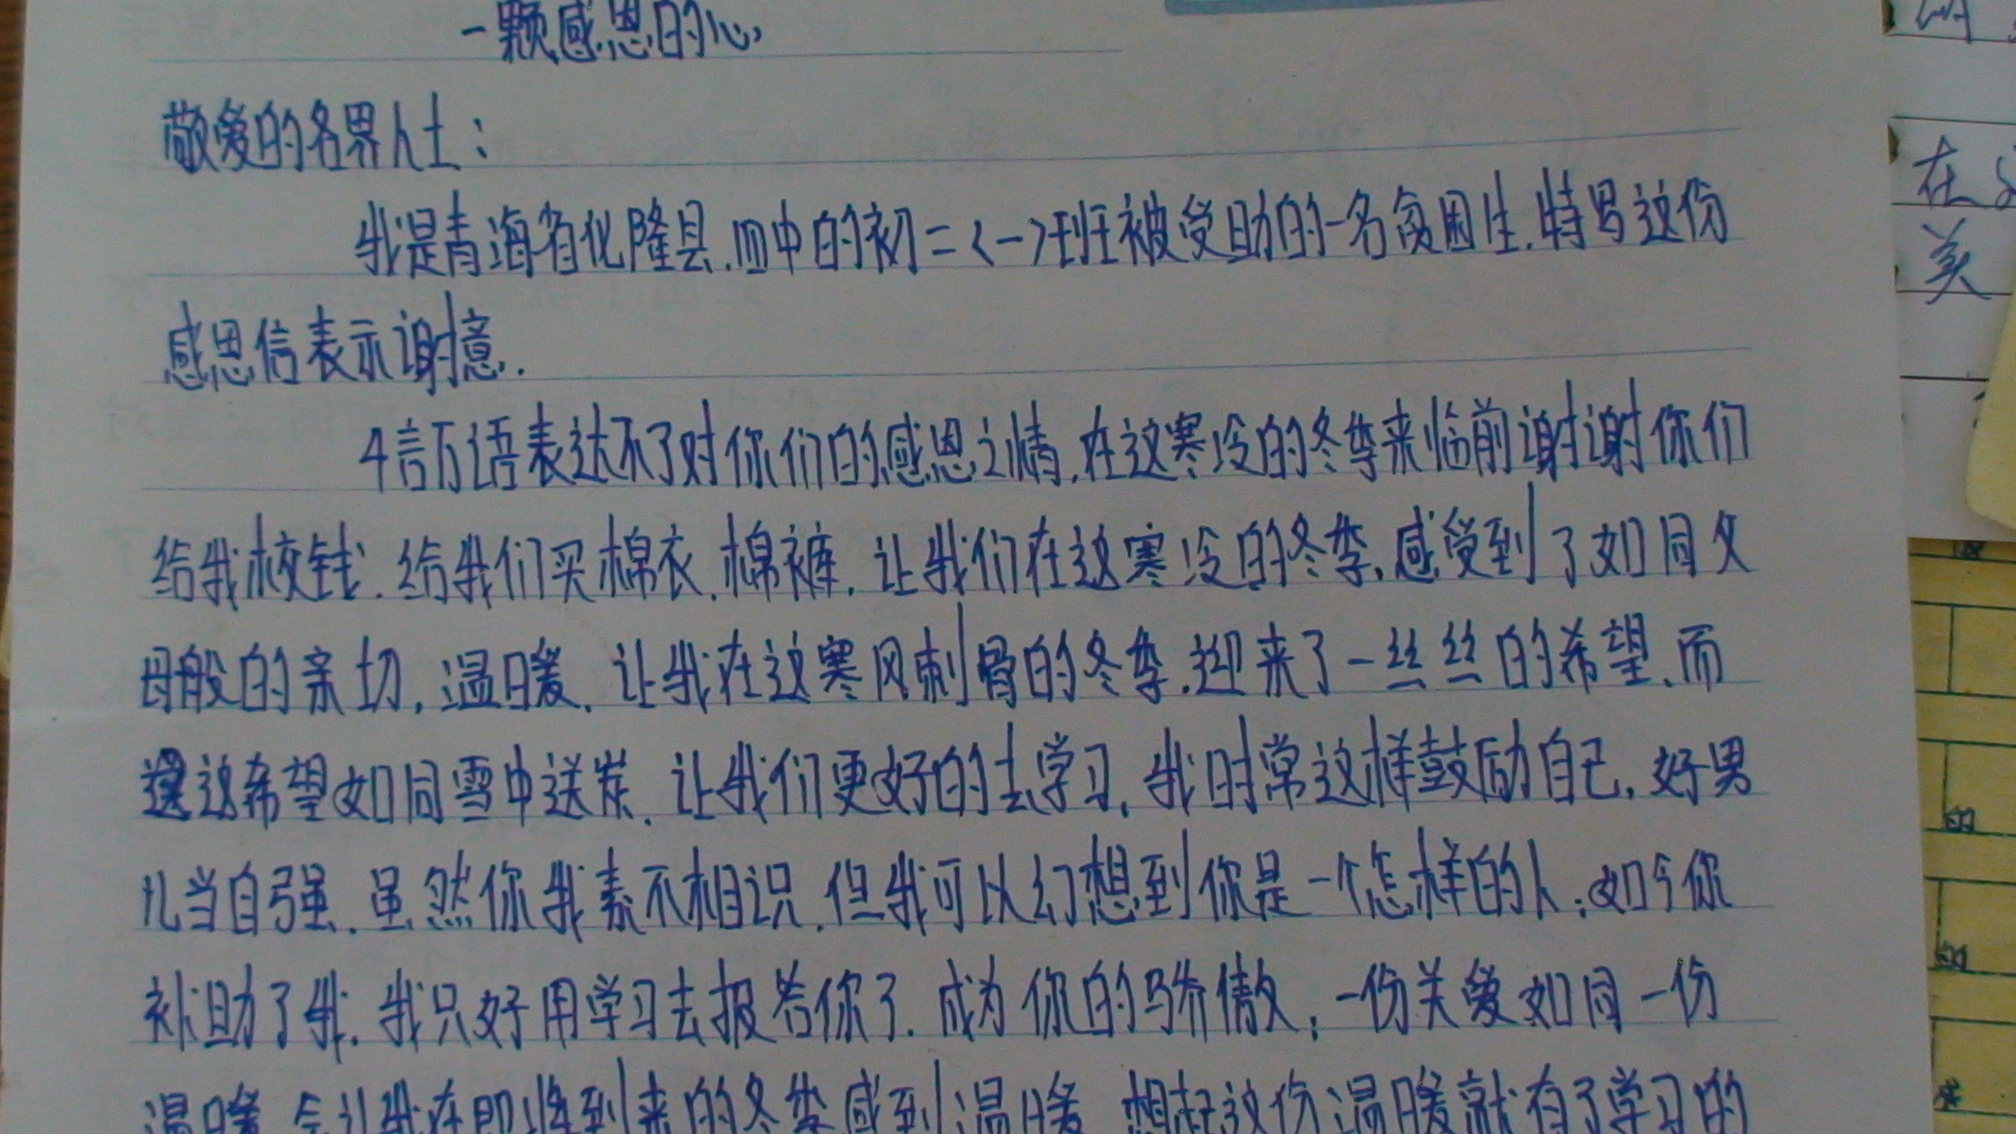 一颗感恩的心
敬爱的各界人士：
我是青海省化隆县.四中的初二<一>班被受助的一名贫困生.特写这份
感恩信表示谢意.
千言万语表达不了对你们的感恩之情.在这寒冷的冬季来临前谢谢你们
给我校钱.给我们买棉衣.棉裤.让我们在这寒冷的冬季.感受到了如同父
母般的亲切,温暖.让我在这寒风刺骨的冬季.迎来了一丝丝的希望、而
这希望如同雪中送炭.让我们更好的去学习,我时常这样鼓励自己.好男
儿当自强.虽然你我素不相识.但我可以幻想到你是一个怎样的人;如今你
补助了我.我只好用学习去报答你了.成为你的骄傲;一份关爱如同一份
温暖.会让我在即将到来的冬季感到温暖.想起这份温暖就有了学习的
在
美
的
的